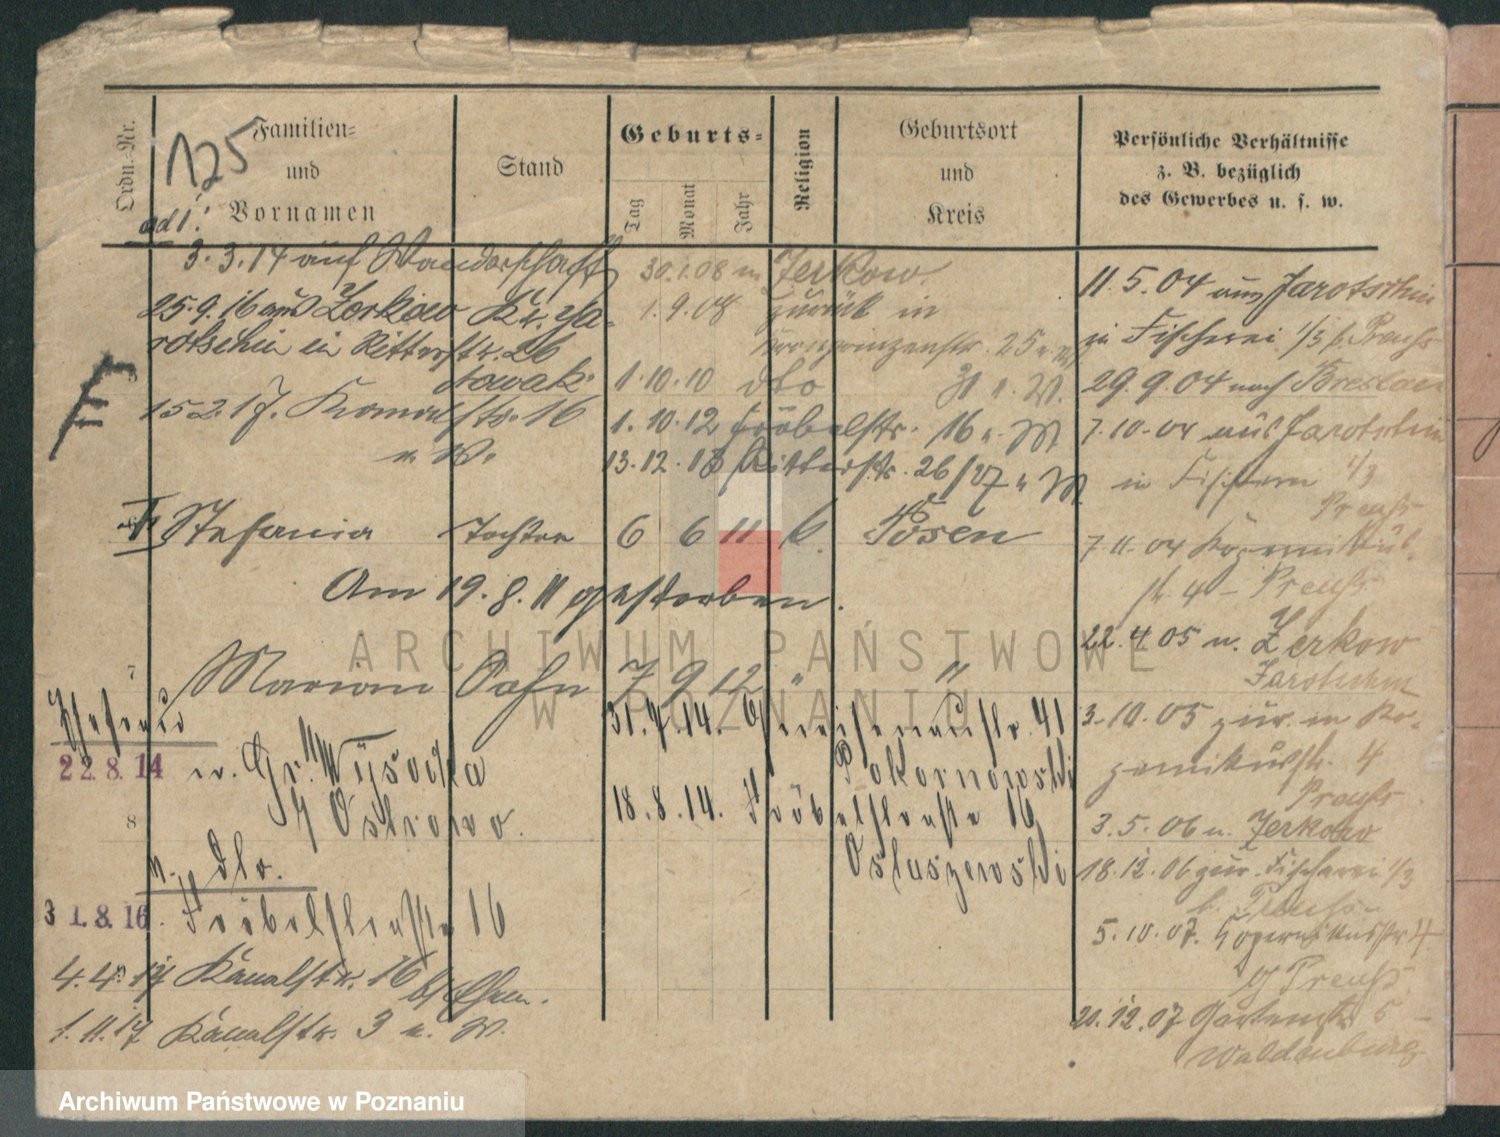 Ordn.-Nr.
Familien-
und
Vornamen
125
ad 1!
Stand
Geburts-
Tag
Monat
Jahr
Religion
Geburtsort
und
Kreis
Persönliche Verhältnisse
z. B. bezüglich
des Gewerbes u. s. w.
3. 3. 14 auf Wanderschaft
25. 9. 16 aus Zerkow Kr. Ja-
rotschin in Ritterstr. 26
Nowak
15 2. 17. Kanalstr. 16
u. W.
E
30.1.08 n Zerkow
1. 9. 08 zurück in
Kronprinzenstr. 25
1. 10. 10 dto
1. 10. 12 Fröbelstr. 16 u. M
13. 12. 13 Ritterstr. 26/27 u M
Stefania Tochter 6 6 11 k. Posen
Am 19. 8. 11 gestorben.
7 Marian Sohn 7 9 12 " "
Stefania
22. 8. 14 n. Gr. Wysocka
Ostrowo.
8
n. dto.
31. 8. 16. Fröbelstraße 16
4. 4. 17 Kanalstr. 16
1. 11. 17 Kanalstr. 3 u. W.
31. 7. 14. Gneisenaustr. 41
Pokornowski
18. 8. 14. Fröbelstraße 16
Ostaszewski
11. 5. 04 aus Jarotschin
in Fischerei 1/3 b. Preuß
29. 9. 04 nach Breslau
7. 10. 04 aus Jarotschin
in Fischerei 1/3
Preuß
7. 11. 04 Kopernikus-
str. 4 - Preuß
22. 4. 05 n. Zerkow
Jarotschin
3. 10. 05 zur. in Ko-
pernikusstr. 4
Preuß
3. 5. 06 n. Zerkow
18. 12. 06 zur. Fischerei 1/3
b. Preuß
5. 10. 07. Kopernikusstr 4
Preuß
20. 12. 07 Gartenstr 5
Waldenburg
ARCHIWUM PAŃSTWOWE
W POZNANIU
Archiwum Państwowe w Poznaniu